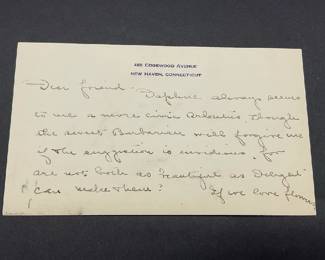 EDGEWOOD AVENUE
NEW HAVEN, CONNECTICUT
Dear friend "Daphne always seems
to me a more civic Arbutus, though
the sweet Barbarian will forgive me
if the suggestion is invidious, for
are not both as beautiful as Delight
can make them? If we love flowers